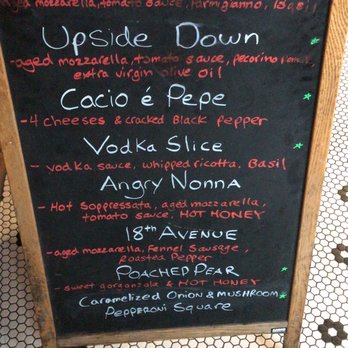 aged mozzarella, tomato sauce, Parmigianno, Basil
Upside Down
-aged mozzarella, tomato sauce, pecorino romano
extra virgin olive oil
Cacio é Pepe
-4 cheeses & cracked Black Pepper
Vodka Slice
- vodka sauce, whipped ricotta, Basil
Angry Nonna
- Hot Soppressata, aged mozzarella,
tomato sauce, HOT HONEY
18th Avenue
-aged mozzarella, Fennel Sausage,
Roasted Pepper
Poached Pear
- sweet gorgonzola & HOT HONEY
Caramelized Onion & Mushroom
Pepperoni Square